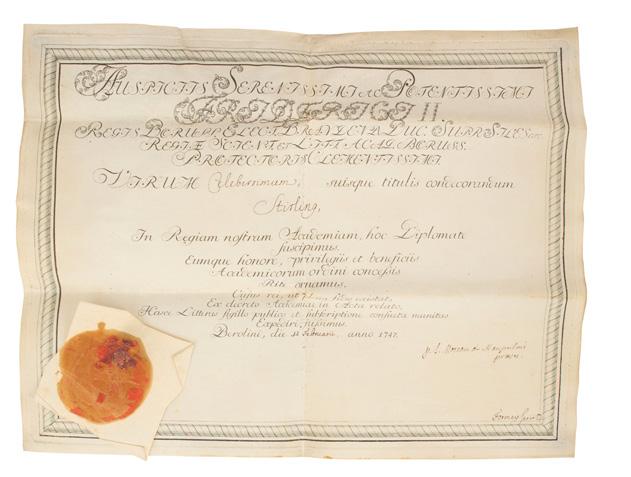 AUSPICIIS SERENISSIMI AC POTENTISSIMI
FRIDERICI II
REGIS BORUSS ELECT BRANDENB DUC. SUPR SILES
REGIÆ SCIENT et LITT ACAD. BORUSS.
PROTECTORIS CLEMENTISSIMI
VIRUM Celeberrimum, suisque titulis condecorandum
Stirling,
In Regiam nostram Academiam, hoc Diplomate
suscipimus.
Eumque honore, privilegiis et beneficiis
Academicorum ordini concessis
Rite ornamus.
Cujus rei, ut
Ex decreto Academiæ, in Acta relato,
Hasce Litteras sigillo publico et subscriptione consueta munitas
Expediri jussimus.
Berolini, die Februarii, anno 1747.
Moreau de Maupertuis
Formey